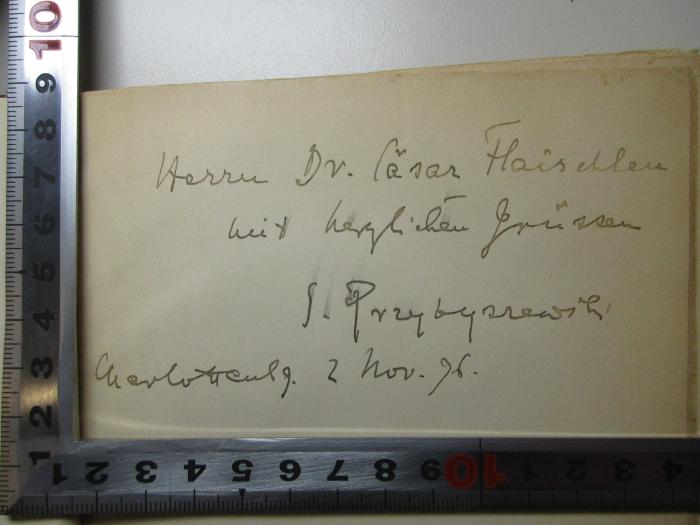 Herrn Dr. Cäsar Flaischlen
mit herzlichen Grüssen
S. Przybyszewski
Charlottenbg. 2 Nov. 96.
10
9
8
7
6
5
4
3
2
1
1 2 3 4 5 6 7 8 9 10 1 2 3 4